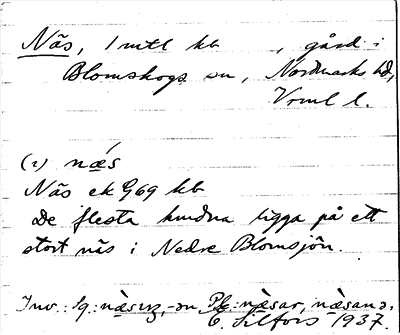 Näs, 1 mtl kb , gård i
Blomskogs sn, Nordmarks hd,
Vrml l.
(1) næ̂s
Näs ek G69 kb
De flesta husdna ligga på ett
stort näs i Nedre Blomsjön.
Inv.: Sg.: næ̀s -ən Pl.: næ̀sar, næ̀sana.
E. Silfors 1937.